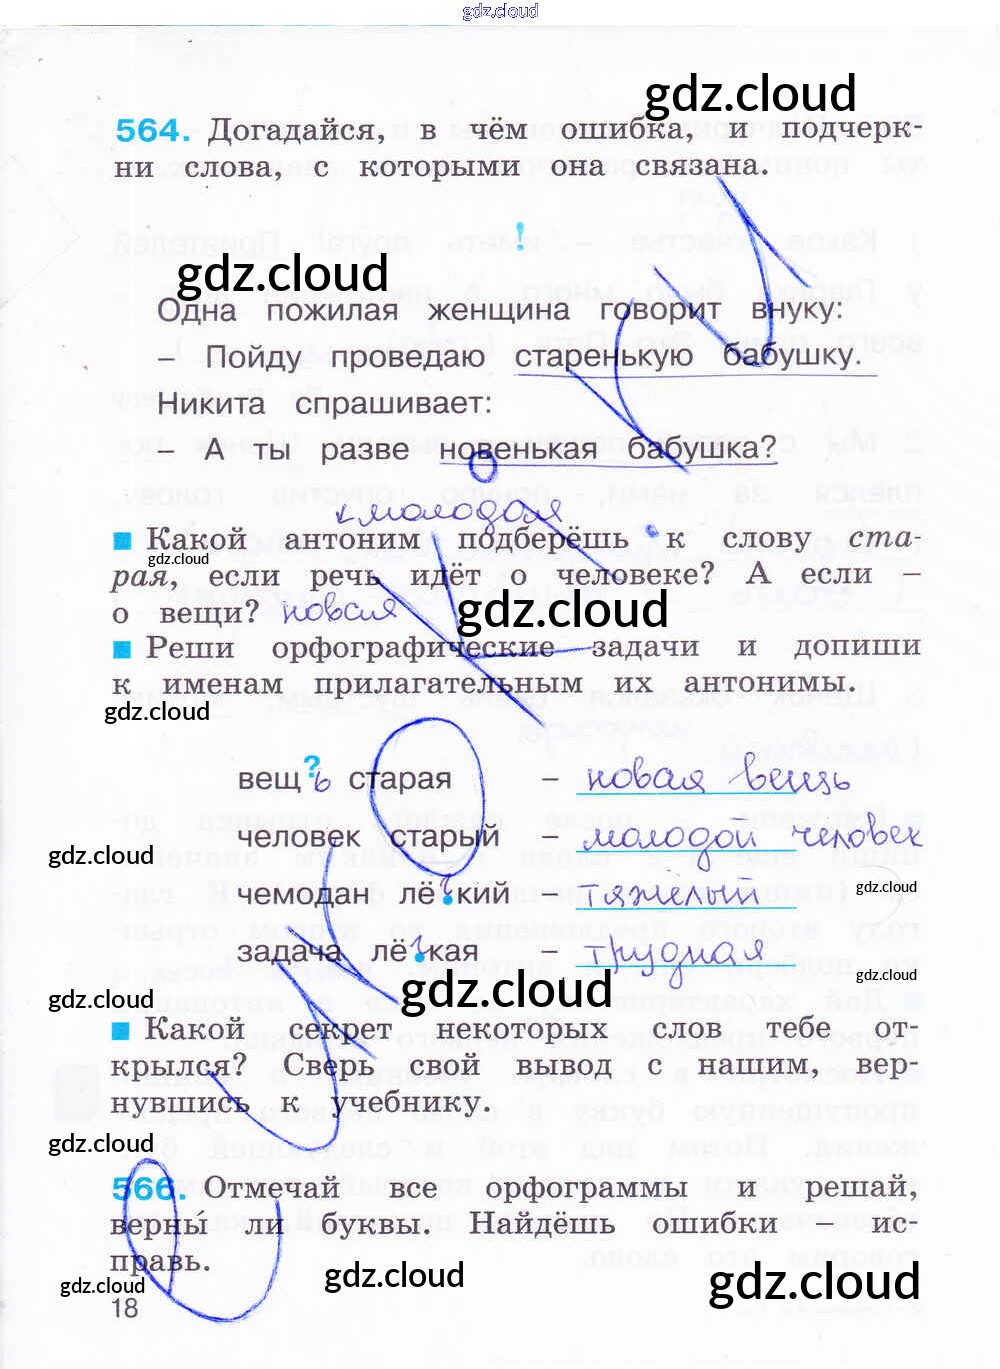 gdz.cloud
gdz.cloud
564. Догадайся, в чём ошибка, и подчерк-
ни слова, с которыми она связана.
!
gdz.cloud
Одна пожилая женщина говорит внуку:
– Пойду проведаю старенькую бабушку.
Никита спрашивает:
– А ты разве новенькая бабушка?
молодая
Какой антоним подберёшь к слову ста-
gdz.cloud
рая, если речь идёт о человеке? А если –
о вещи? новая
gdz.cloud
Реши орфографические задачи и допиши
к именам прилагательным их антонимы.
gdz.cloud
вещ?ь старая – новая вещь
человек старый – молодой человек
gdz.cloud
чемодан лё?кий – тяжёлый
gdz.cloud
задача лё?кая – трудная
gdz.cloud
gdz.cloud
gdz.cloud
Какой секрет некоторых слов тебе от-
крылся? Сверь свой вывод с нашим, вер-
нувшись к учебнику.
gdz.cloud
566. Отмечай все орфограммы и решай,
верны́ ли буквы. Найдёшь ошибки – ис-
правь.
gdz.cloud
gdz.cloud
gdz.cloud
18